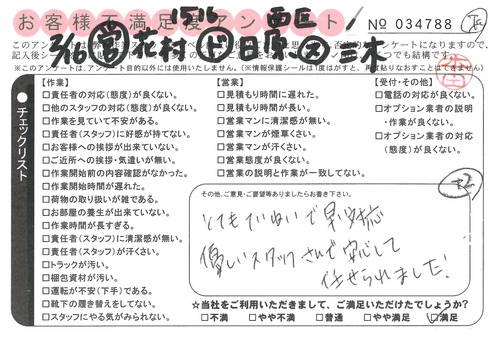 お客様不満足度アンケート
№ 034788
このアンケートは
アンケートになりますので、
記入後シール
つても結構です。
※このアンケートは、アンケート目的以外には使用いたしません。(※情報保護シールは1度はがすと、再度貼りなおすことはできません)
1516 西区
3/16 営 花村 ド 日原 ス 三木
チェックリスト
【作業】
□責任者の対応(態度)が良くない。
□他のスタッフの対応(態度)が良くない。
□作業を見ていて不安がある。
□責任者(スタッフ)に好感が持てない。
□お客様への挨拶が出来ていない。
□ご近所への挨拶・気遣いが無い。
□作業開始前の内容確認がなかった。
□作業開始時間が遅れた。
□荷物の取り扱いが雑である。
□お部屋の養生が出来ていない。
□作業時間が長すぎる。
□責任者(スタッフ)に清潔感が無い。
□責任者(スタッフ)が汗くさい。
□トラックが汚い。
□梱包資材が汚い。
□運転が不安(下手)である。
□靴下の履き替えをしてない。
□スタッフにやる気がみられない。
【営業】
□見積もり時間に遅れた。
□見積もり時間が長い。
□営業マンに清潔感が無い。
□営業マンが煙草くさい。
□営業マンが汗くさい。
□営業態度が良くない。
□営業の説明と作業が一致してない。
【受付・その他】
□電話の対応が良くない。
□オプション業者の説明
・作業が良くない。
□オプション業者の対応
(態度)が良くない。
その他、ご意見・ご要望等ありましたらお書き下さい。
とてもていねいで早い対応
優しいスタッフさんで安心して
任せられました!
☆当社をご利用いただきまして、ご満足いただけたでしょうか?
□不満 □やや不満 □普通 □やや満足 ☑満足